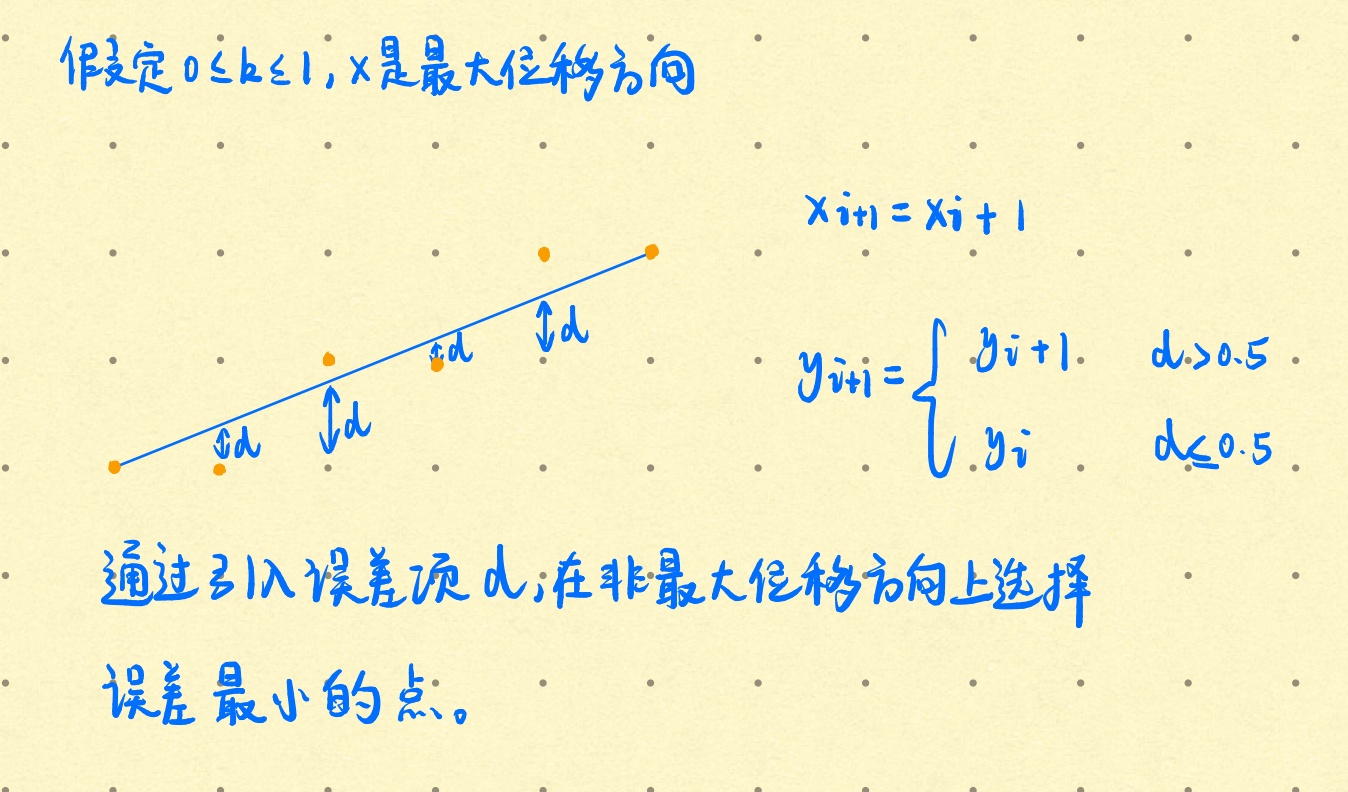 假定0≤k≤1,x是最大位移方向
xi+1=xi+1
yi+1={
yi+1 d>0.5
yi d≤0.5
d
d
d
d
通过引入误差项d,在非最大位移方向上选择
误差最小的点。